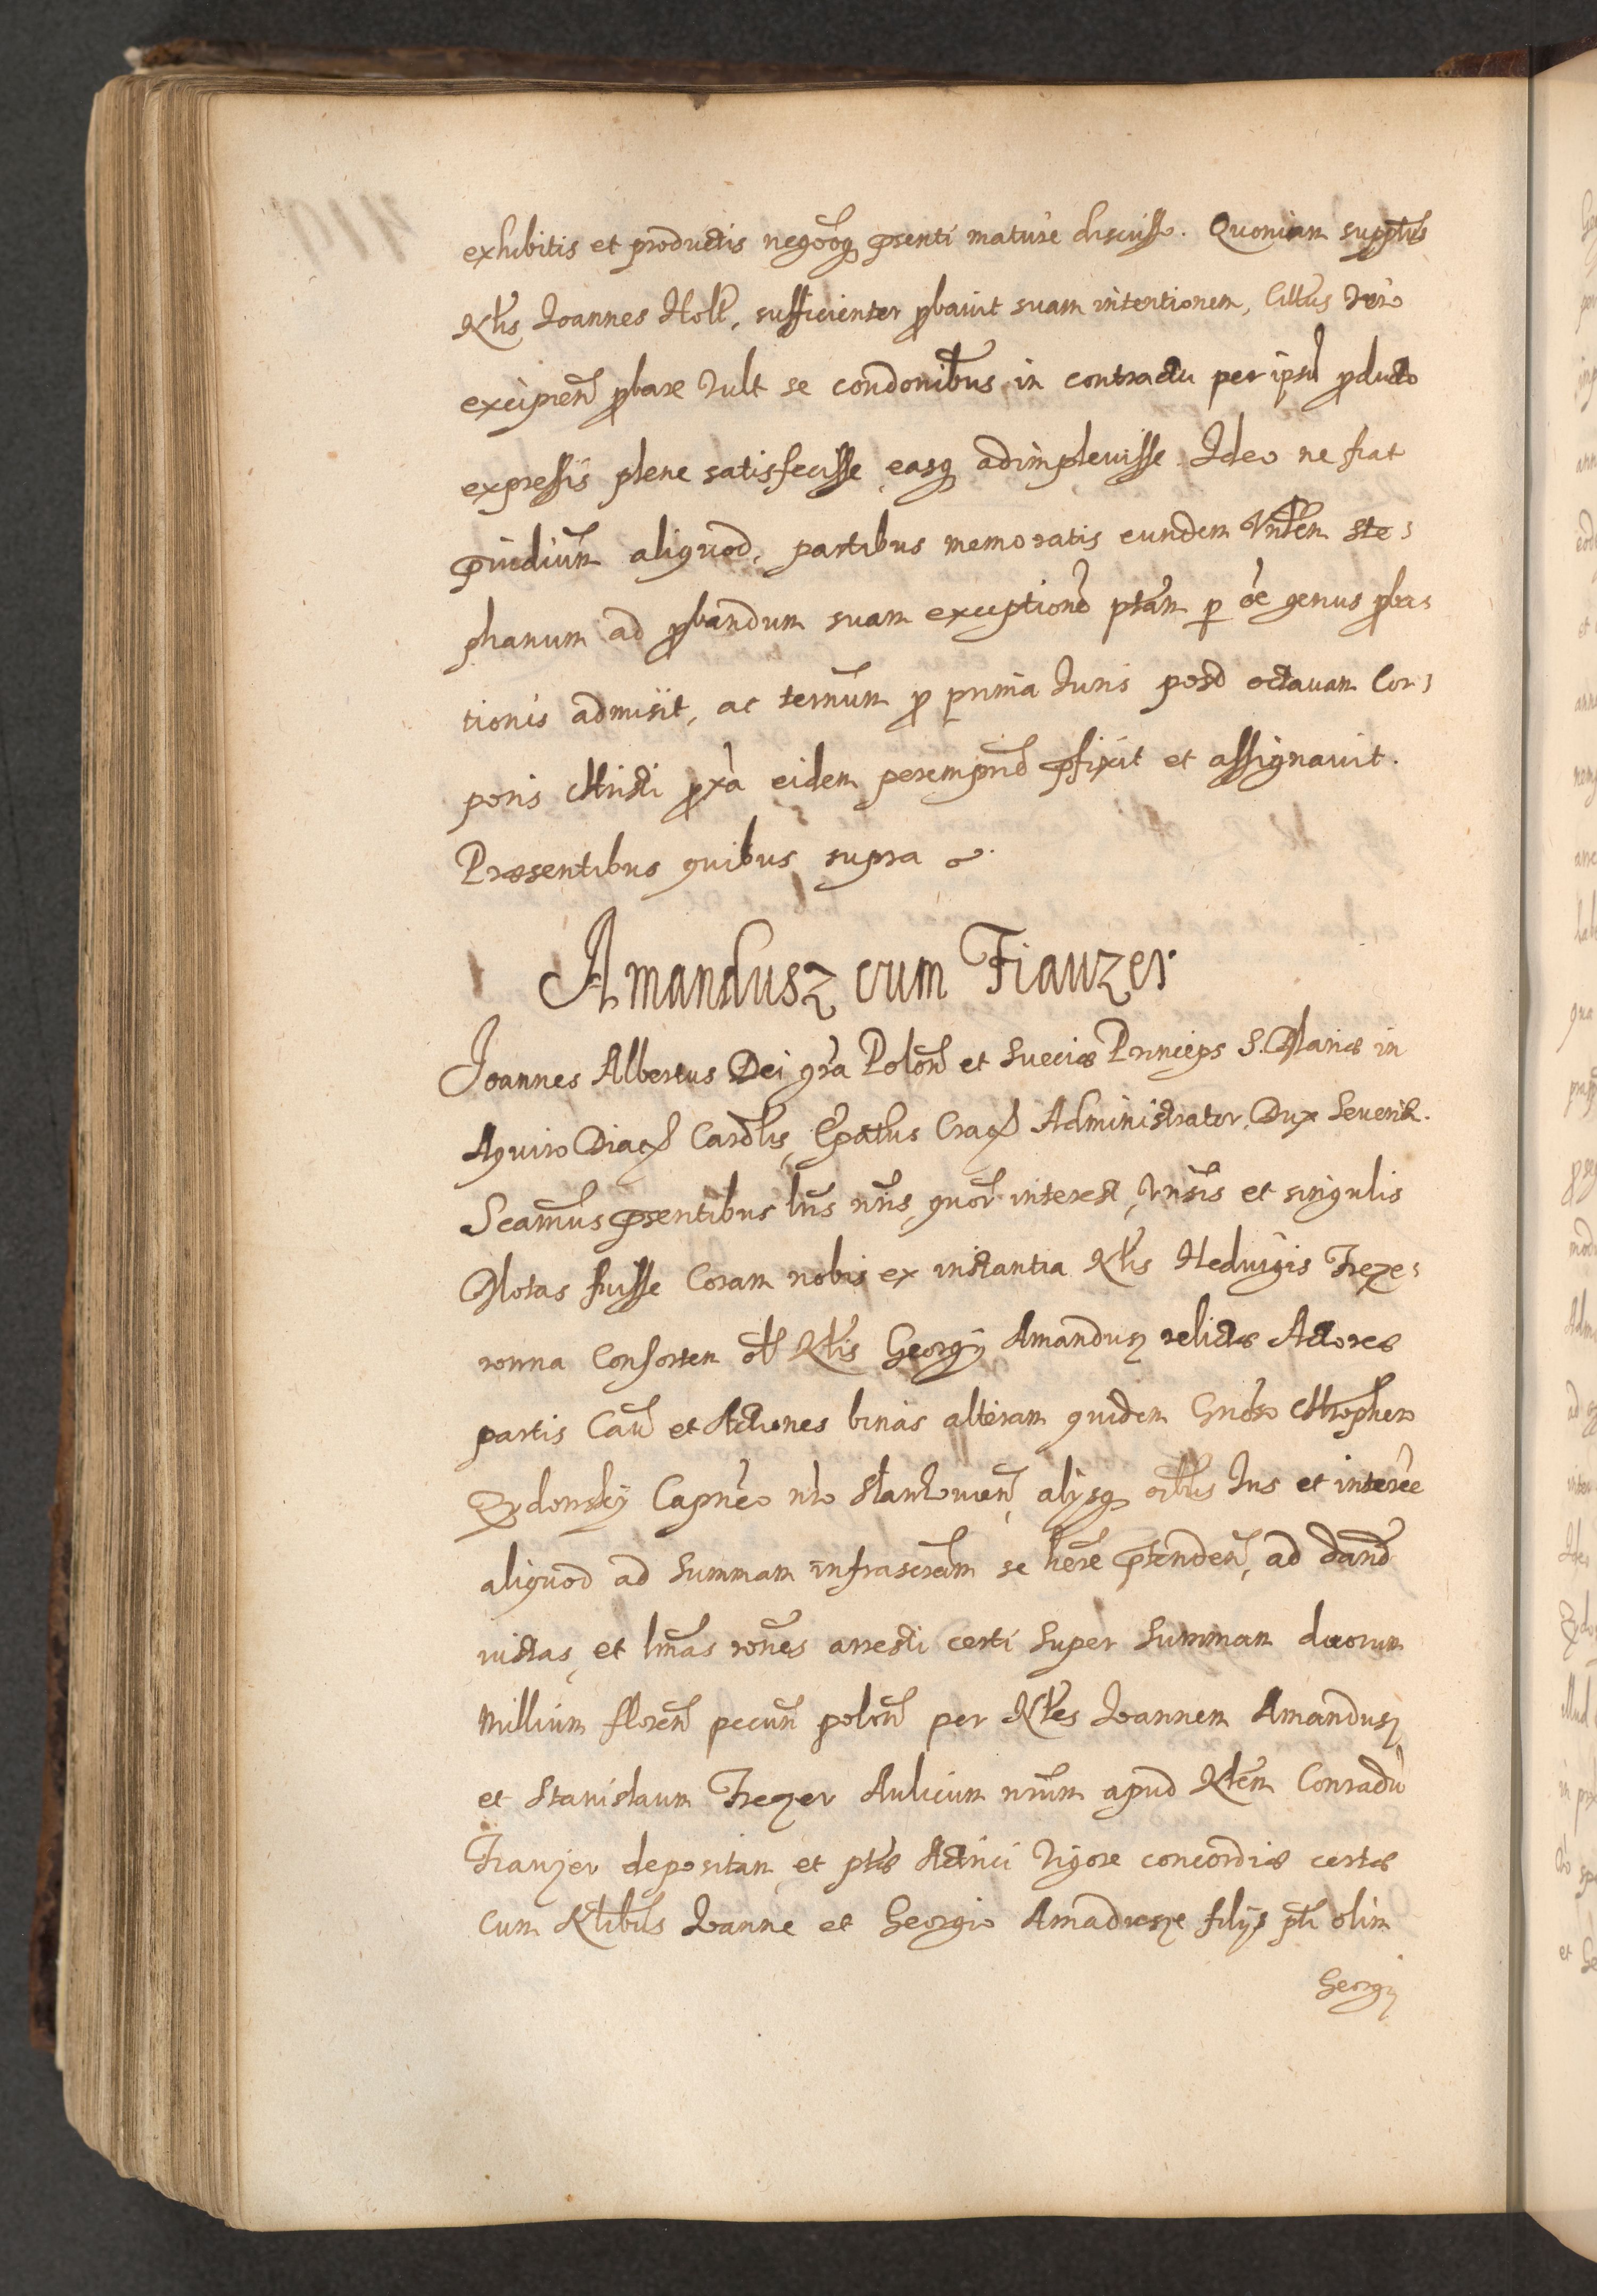 exhibitis et productis negõoq; p̃senti mature discusso. Quoniam suppttus
Ktis Joannes Holt, sufficienter p̃bavit suam intentionem, Cittus vero
excipien̄ p̃bare vult se condonibus in contractu per ipsū p̃ducto
expressis plene satisfecisse, easq; adimplevisse. Ideo ne fiat
p̃iudium aliquod, partibus memoratis eundem Vntem Ste-
phanum ad p̃bandum suam exceptionē ptam p õe genus p̃ba-
tionis admisit, ac ternum p̃ prima Iuris post octavam Cor-
poris Christi p̃xa eidem peremprīe p̃fixit et assignavit.
Præsentibus quibus supra
Amandusz cum Fiauzer
Joannes Albertus Dei gra Polon̄ et Sueciæ Princeps S. Mariæ in
Aquiro Diac̄ Cardlis, Epatus Crac̄ Administrator, Dux Severiæ.
Scamus p̃sentibus lris nris, quor̄ interest, vnsis et singulis
Motas fuisse Coram nobis ex instantia Ktis Hedvigis Freze-
rovna Consorten ol Ktis Georgij Amandusz relictæ Actoreæ
partis Caus̄ et Actiones binas alteram quidem Gnoso Chrophero
Zydowskij Capneo nro Slawkovien̄, alijsq; oibus Ius et interēe
aliquod ad Summam infrascrtam se hēre p̃tenden̄, ad dand̄
vistas, et lmas rones arresti certi Super Summam duorum
Millium floren̄ pecun̄ polon̄ per Ktes Joannem Amandusz
et Stanislaum Frezer Aulicum nrum apud Ktem Conradū
Franzer depositam et ptæ Actrici vigore concordiæ certæ
cum Ktibus Joanne et Georgio Amadusze filijs pti olim
Georgij